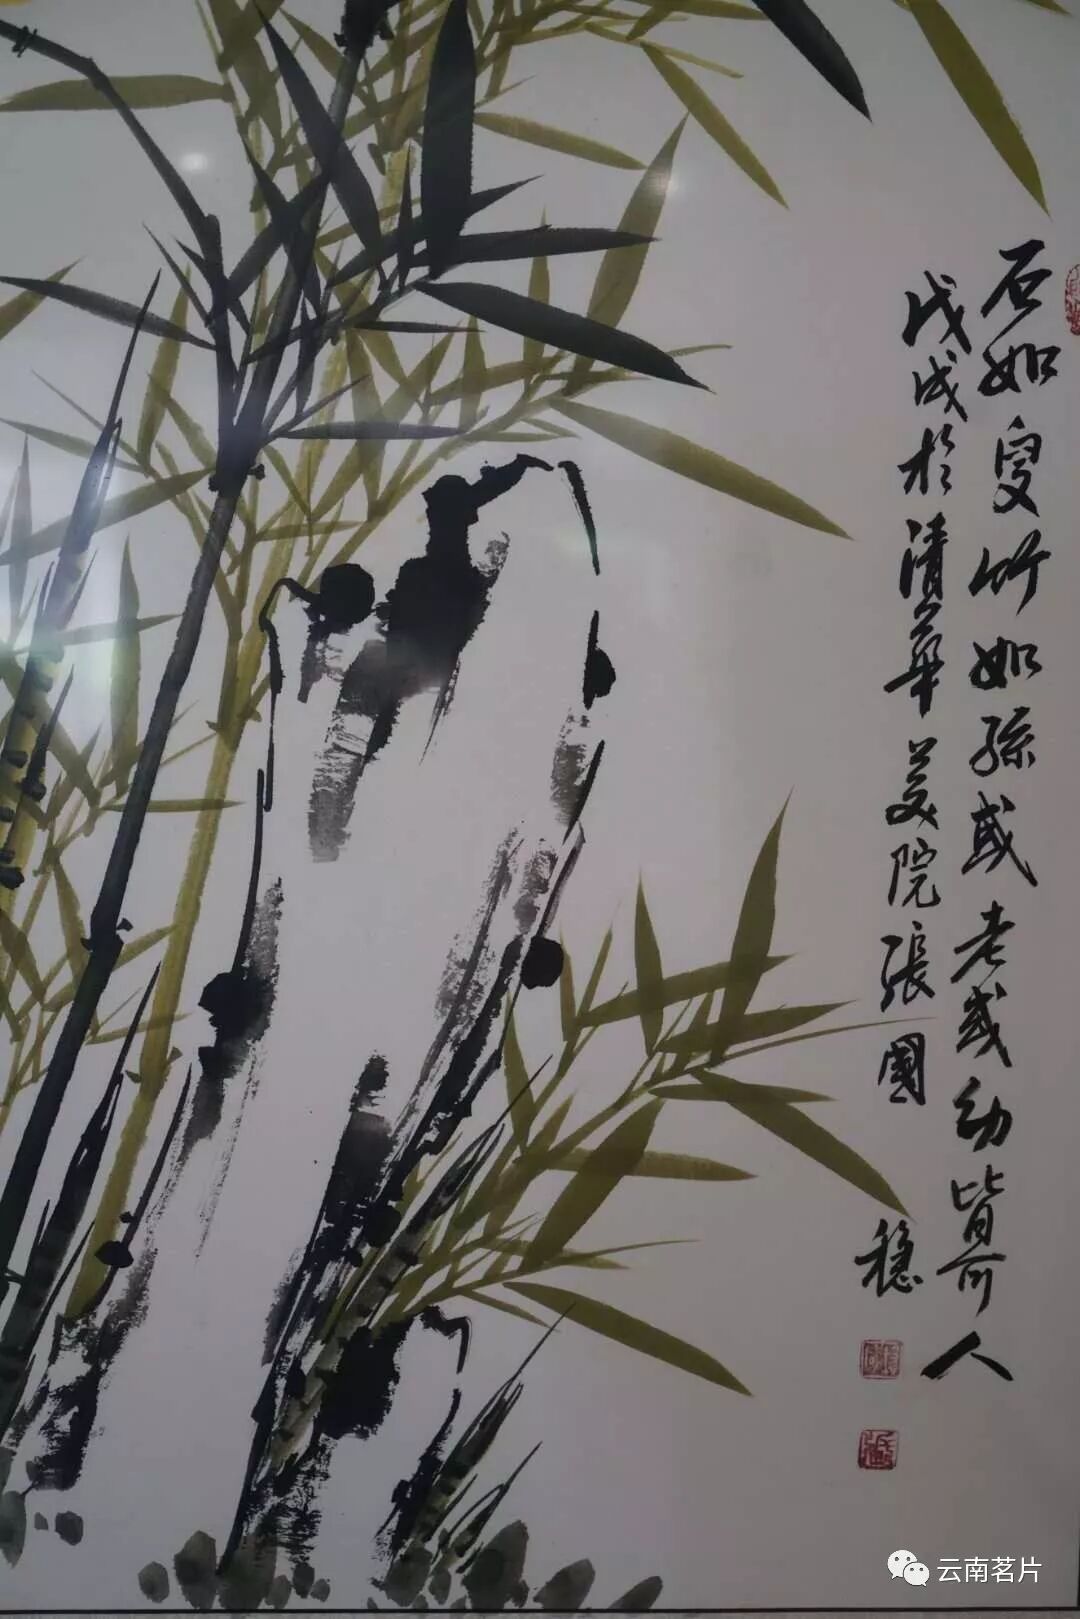 石如叟竹如孫或老或幼皆可人
戊戌於清華美院張國穩
云南茗片